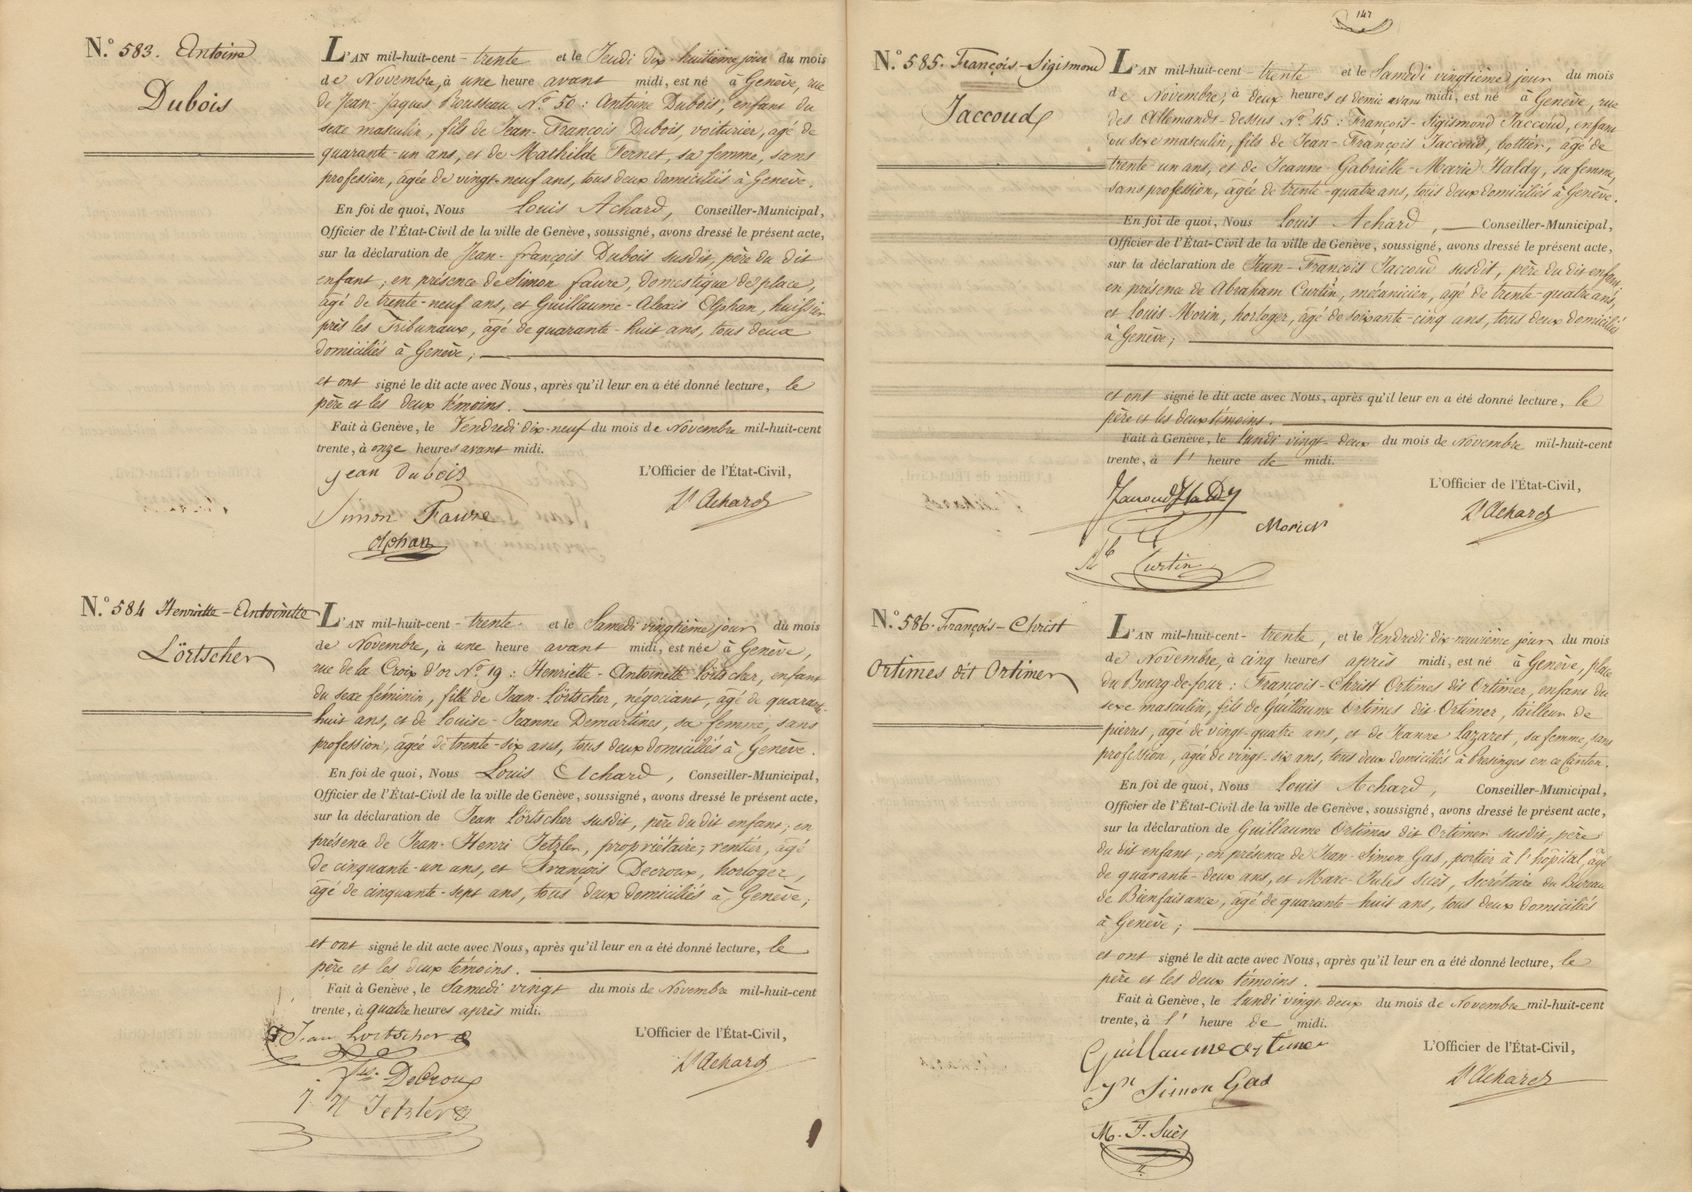 N.º 583. Antoine
Dubois
L'AN mil-huit-cent-trente et le Jeudi dix-huitième jour du mois
de Novembre, à une heure avant midi, est né à Genève, rue
de Jean-Jaques Rousseau Nº 50 : Antoine Dubois, enfant du
sexe masculin, fils de Jean-François Dubois, voiturier, âgé de
quarante-un ans, et de Mathilde Pernet, sa femme, sans
profession, âgée de vingt-neuf ans, tous deux domiciliés à Genève.
En foi de quoi, Nous Louis Achard, Conseiller-Municipal,
Officier de l'État-Civil de la ville de Genève, soussigné, avons dressé le présent acte,
sur la déclaration de Jean-françois Dubois susdit, père du dit
enfant ; en présence de Simon Faure, domestique de place,
âgé de trente-neuf ans, et Guillaume-Alexis Olphan, huissier
près les Tribunaux, âgé de quarante-huit ans, tous deux
domiciliés à Genève ;
et ont signé le dit acte avec Nous, après qu'il leur en a été donné lecture, le
père et les deux témoins.
Fait à Genève, le Vendredi dix-neuf du mois de Novembre mil-huit-cent
trente, à onze heures avant midi.
jean dubois
L'Officier de l'État-Civil,
Ls Achard
Simon Faure
Olphan
N.º 584 Henriette-Antoinette
Lörtscher
L'AN mil-huit-cent-trente et le Samedi vingtième jour du mois
de Novembre, à une heure avant midi, est née à Genève,
rue de la Croix d'or Nº 19 : Henriette-Antoinette Lörtscher, enfant
du sexe féminin, fille de Jean Lörtscher, négociant, âgé de quarante-
huit ans, et de Louise-Jeanne Demartines, sa femme, sans
profession, âgée de trente-six ans, tous deux domiciliés à Genève.
En foi de quoi, Nous Louis Achard, Conseiller-Municipal,
Officier de l'État-Civil de la ville de Genève, soussigné, avons dressé le présent acte,
sur la déclaration de Jean Lörtscher susdit, père du dit enfant ; en
présence de Jean-Henri Jetzler, propriétaire, rentier, âgé
de cinquante-un ans, et François Decroux, horloger,
âgé de cinquante-sept ans, tous deux domiciliés à Genève ;
et ont signé le dit acte avec Nous, après qu'il leur en a été donné lecture, le
père et les deux témoins.
Fait à Genève, le Samedi vingt du mois de Novembre mil-huit-cent
trente, à quatre heures après midi.
Jean Lortscher
L'Officier de l'État-Civil,
Ls Achard
fçs. DeCroux
J. H Jetzler
147
N.º 585. François-Sigismond
Jaccoud
L'AN mil-huit-cent-trente et le Samedi vingtième jour du mois
de Novembre, à deux heures et demie avant midi, est né à Genève, rue
des Allemands-dessus Nº 45 : François-Sigismond Jaccoud, enfant
du sexe masculin, fils de Jean-François Jaccoud, bottier, âgé de
trente un ans, et de Jeanne-Gabrielle-Marie Haldy, sa femme,
sans profession, âgée de trente-quatre ans, tous deux domiciliés à Genève.
En foi de quoi, Nous Louis Achard, Conseiller-Municipal,
Officier de l'État-Civil de la ville de Genève, soussigné, avons dressé le présent acte,
sur la déclaration de Jean-François Jaccoud susdit, père du dit enfant ;
en présence de Abraham Curtin, mécanicien, âgé de trente-quatre ans,
et Louis Morin, horloger, âgé de soixante-cinq ans, tous deux domiciliés
à Genève ;
et ont signé le dit acte avec Nous, après qu'il leur en a été donné lecture, le
père et les deux témoins.
Fait à Genève, le lundi vingt-deux du mois de Novembre mil-huit-cent
trente, à l' heure de midi.
L'Officier de l'État-Civil,
Ls Achard
Morin
Ab Curtin
N.º 586. François-Christ
Ortimes dit Ortimer
L'AN mil-huit-cent-trente, et le Vendredi dix-neuvième jour du mois
de Novembre, à cinq heures après midi, est né à Genève, place
du Bourg-de-four : François-Christ Ortimes dit Ortimer, enfant du
sexe masculin, fils de Guillaume Ortimes dit Ortimer, tailleur de
pierres, âgé de vingt-quatre ans, et de Jeanne Lazaret, sa femme, sans
profession, âgée de vingt-six ans, tous deux domiciliés à Presinges en ce Canton.
En foi de quoi, Nous Louis Achard, Conseiller-Municipal,
Officier de l'État-Civil de la ville de Genève, soussigné, avons dressé le présent acte,
sur la déclaration de Guillaume Ortimes dit Ortimer susdit, père
du dit enfant ; en présence de Jean-Simon Gas, portier à l'hôpital, âgé
de quarante-deux ans, et Marc-Jules Suès, Secrétaire du Bureau
de Bienfaisance, âgé de quarante-huit ans, tous deux domiciliés
à Genève ;
et ont signé le dit acte avec Nous, après qu'il leur en a été donné lecture, le
père et les deux témoins.
Fait à Genève, le lundi vingt-deux du mois de Novembre mil-huit-cent
trente, à l' heure de midi.
Guillaume Ortimer
L'Officier de l'État-Civil,
Ls Achard
Jn Simon Gas
M. J. Suès